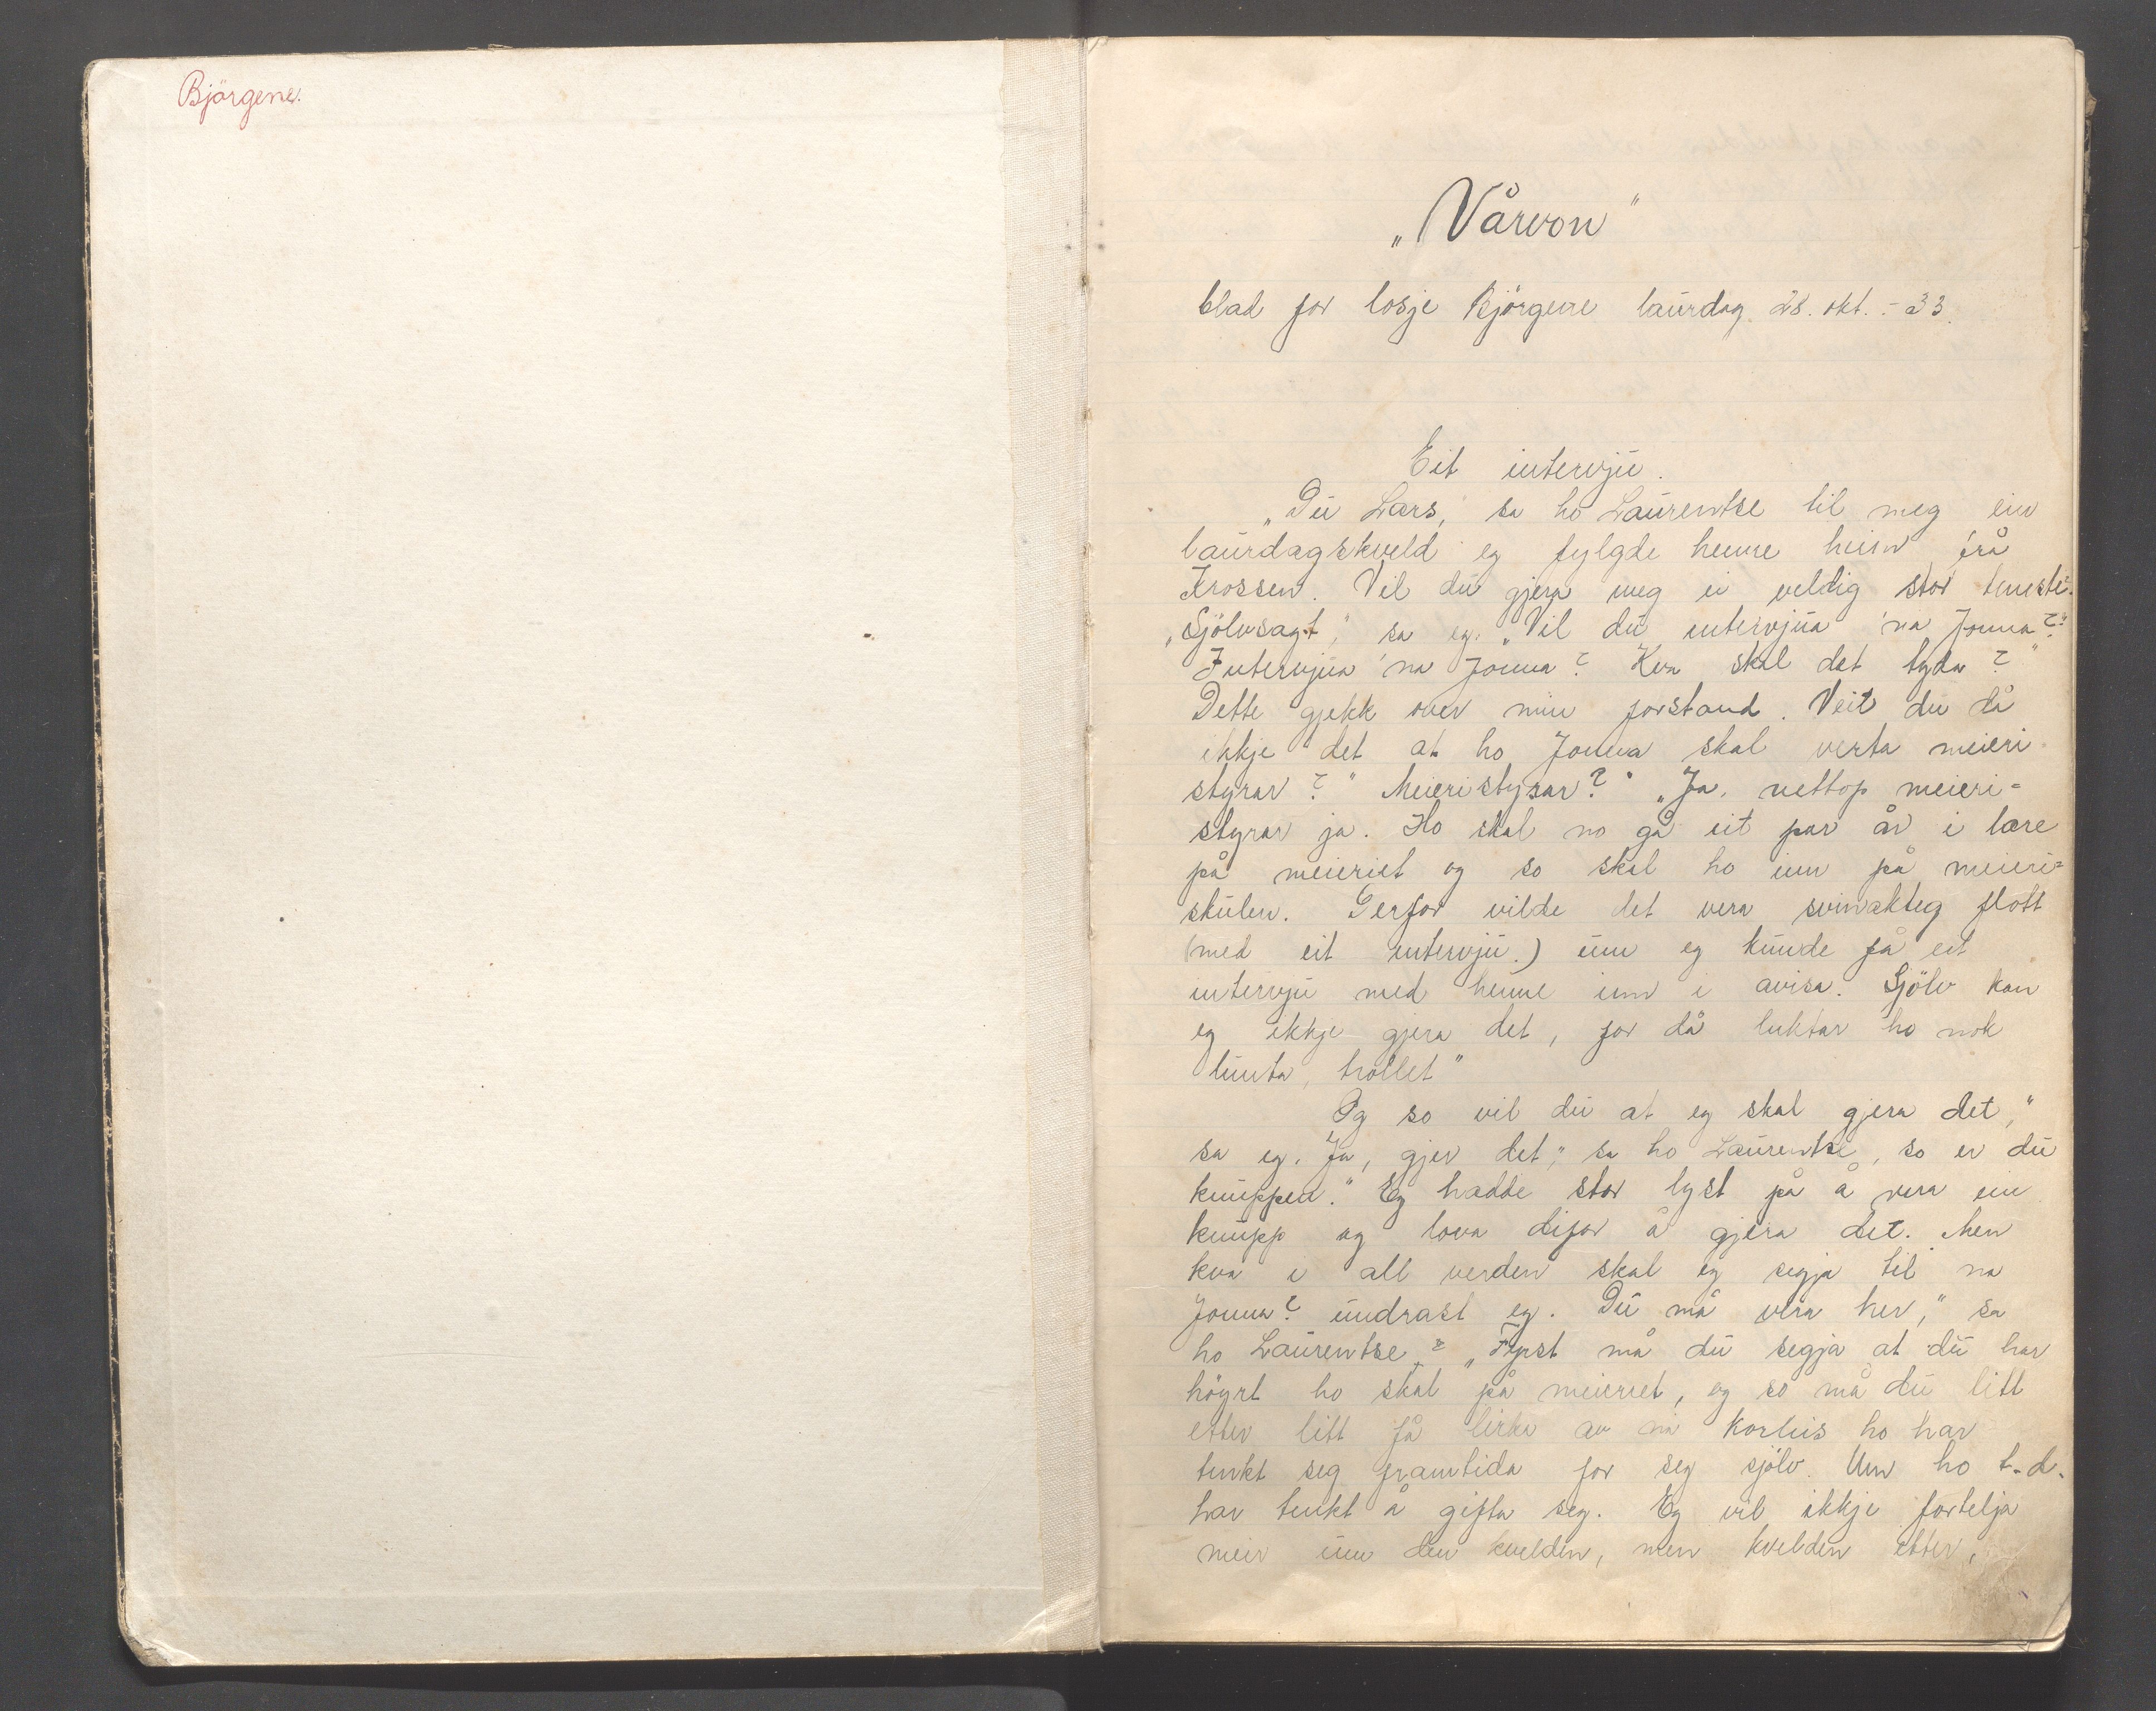 Björgene.
„Vårvon"
blad for losje Björgene laurdag 28. okt. - 33.
Eit intervju.
„Du Lars, sa ho Laurentse til meg ein
laurdagskveld eg fylgde henne heim frå
Krossen. Vil du gjera meg ei veldig stor teneste?
„Sjölvsagt," sa eg. „Vil du intervjua 'na Jonna?"
Intervjua 'na Jonna? Kva skal det tyda?"
Dette gjekk over min forstand. Veit du då
ikkje det at ho Jonna skal verta meieri-
styrar?" Meieristyrar?" „Ja, nettop meieri=
styrar ja. Ho skal no gå eit par år i lære
på meieriet og so skal ho inn på meieri=
skulen. Derfor vilde det vera svinaktig flott
(med eit intervju.) um eg kunde få eit
intervju med henne inn i avisa. Sjölv kan
eg ikkje gjera det, for då luktar ho nok
lunta, trollet"
Og so vil du at eg skal gjera det,"
sa eg. Ja, gjer det," sa ho Laurentse, so er du
knuppen." Eg hadde stor lyst på å vera ein
knupp og lova difor å gjera det. Men
kva i all verden skal eg segja til na
Jonna? undrast eg. Du må vera her," sa
ho Laurentse." „Fyrst må du segja at du har
höyrt ho skal på meieriet, og so må du litt
etter litt få lirka av na korleis ho har
tenkt seg framtida for seg sjölv. Um ho t.d.
har tenkt å gifta seg. Eg vil ikkje fortelja
meir um den kvelden, men kvelden etter,